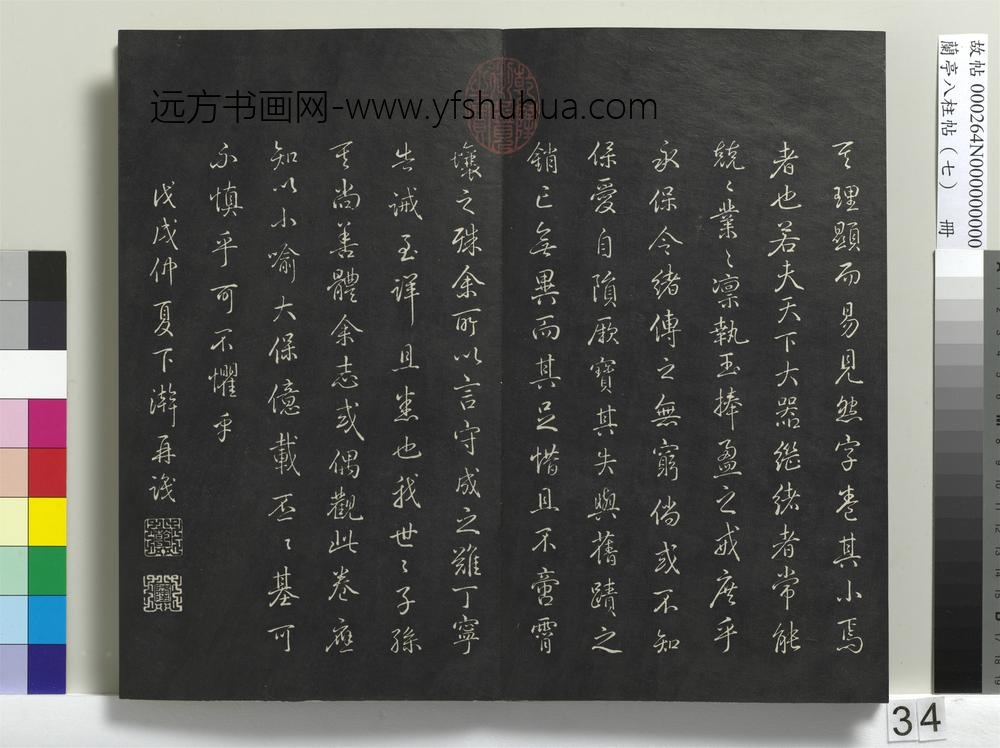 远方书画网-www.yfshuhua.com
其理顯而易見然字卷其小焉
者也若夫天下大器繼緒者常能
兢〻業〻凛執玉捧盈之戒庶乎
永保令緒傳之無窮倘或不知
保愛自隳厥寶其失與舊蹟之
銷亡無異而其足惜且不啻霄
壤之殊余所以言守成之難丁寧
告誡至詳且悉也我世〻子孫
其尚善體余志或偶觀此卷應
知以小喻大保億載丕〻基可
不慎乎可不懼乎
戊戌仲夏下澣再識
故帖000264N000000000
蘭亭八柱帖(七) 冊
34